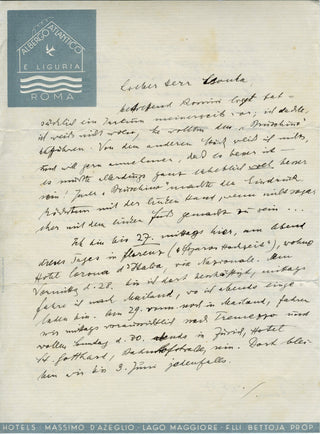 ALBERGO ATLANTICO
E LIGURIA
ROMA
Lieber Herr
betreffend Rossini liegt tat-
sächlich ein Irrtum meinerseits vor; ich dachte,
ich weiss nicht wieso, Sie wollten den "Bruschino"
aufführen. Von dem anderen Stück weiss ich nichts,
will gern annehmen, daß es besser ist —
es müsste allerdings ganz erheblich viel besser
sein! Jener "Bruschino" machte den Eindruck
mit der linken Hand, wenn nicht sogar
eher mit dem linken Fuß gemacht zu sein ...
Ich bin bis 27. mittags hier, am Abend
dieses Tages in Florenz ("Figaros Hochzeit"), wohne
Hotel Corona d'Italia, via Nazionale. Am
Vormittag d. 28. bin ich dort beschäftigt, mittags
fahre ich nach Mailand, wo ich abends einge-
laden bin. Am 29. vorm. noch in Mailand, fahren
wir mittags voraussichtlich nach Tremezzo und
wollen Sonntag d. 30. abends in Zürich, Hotel
St. Gotthard, Bahnhofstraße, sein. Dort blei-
ben wir bis 3. Juni jedenfalls.
HOTELS: MASSIMO D'AZEGLIO - LAGO MAGGIORE - F.LLI BETTOJA PROP.